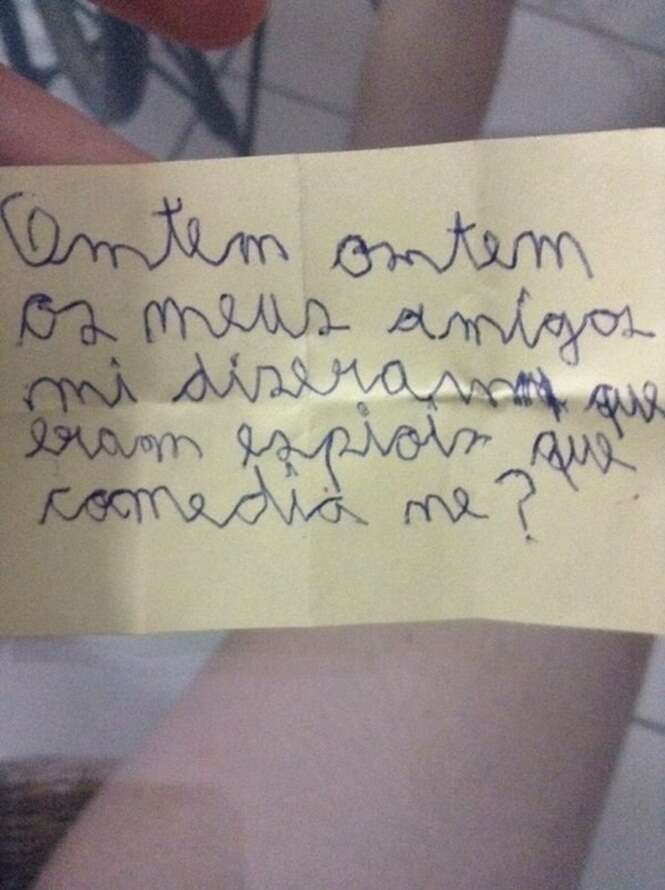 Omtem ontem
os meus amigos
mi diseram que
eram espiois que
comedia ne?